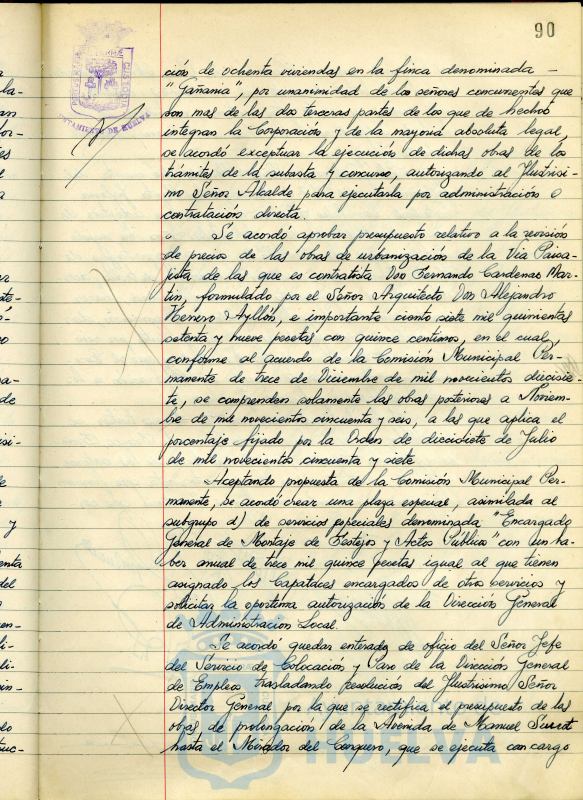 90
ción de ochenta viviendas en la finca denominada -
"Gañania", por unanimidad de los señores concurrentes que
son mas de las dos terceras partes de los que de hecho
integran la Corporación y de la mayoria absoluta legal,
se acordó exceptuar la ejecución de dichas obras de los
trámites de la subasta y concurso, autorizando al Ilustrisi-
mo Señor Alcalde para ejecutarla por administración o
contratación directa.
Se acordó aprobar presupuesto relativo a la revisión
de precios de las obras de urbanización de la Via Paisa-
jista de las que es contratista Don Fernando Cardenas Mar-
tin, formulado por el Señor Arquitecto Don Alejandro
Herrero Ayllón, e importante ciento siete mil quinientas
setenta y nueve pesetas con quince centimos, en el cual,
conforme al acuerdo de la Comisión Municipal Per-
manente de trece de Diciembre de mil novecientos diecisie-
te, se comprenden solamente las obras posteriores a Noviem-
bre de mil novecientos cincuenta y seis, a las que aplica el
porcentaje fijado por la Orden de diecisiete de Julio
de mil novecientos cincuenta y siete
Aceptando propuesta de la Comisión Municipal Per-
manente, se acordó crear una plaza especial, asimilada al
subgrupo d) de servicios especiales denominada "Encargado
General de Montaje de Festejos y Actos Públicos" con un ha-
ber anual de trece mil quince pesetas igual al que tienen
asignado los Capataces encargados de otros servicios y
solicitar la oportuna autorización de la Dirección General
de Administracion Local.
Se acordó quedar enterado de oficio del Señor Jefe
del Servicio de Colocación y Paro de la Dirección General
de Empleo trasladando resolución del Ilustrisimo Señor
Director General por la que se rectifica el presupuesto de las
obras de prolongación de la Avenida de Manuel Siurot
hasta el Mirador del Conquero, que se ejecuta con cargo
HUELVA